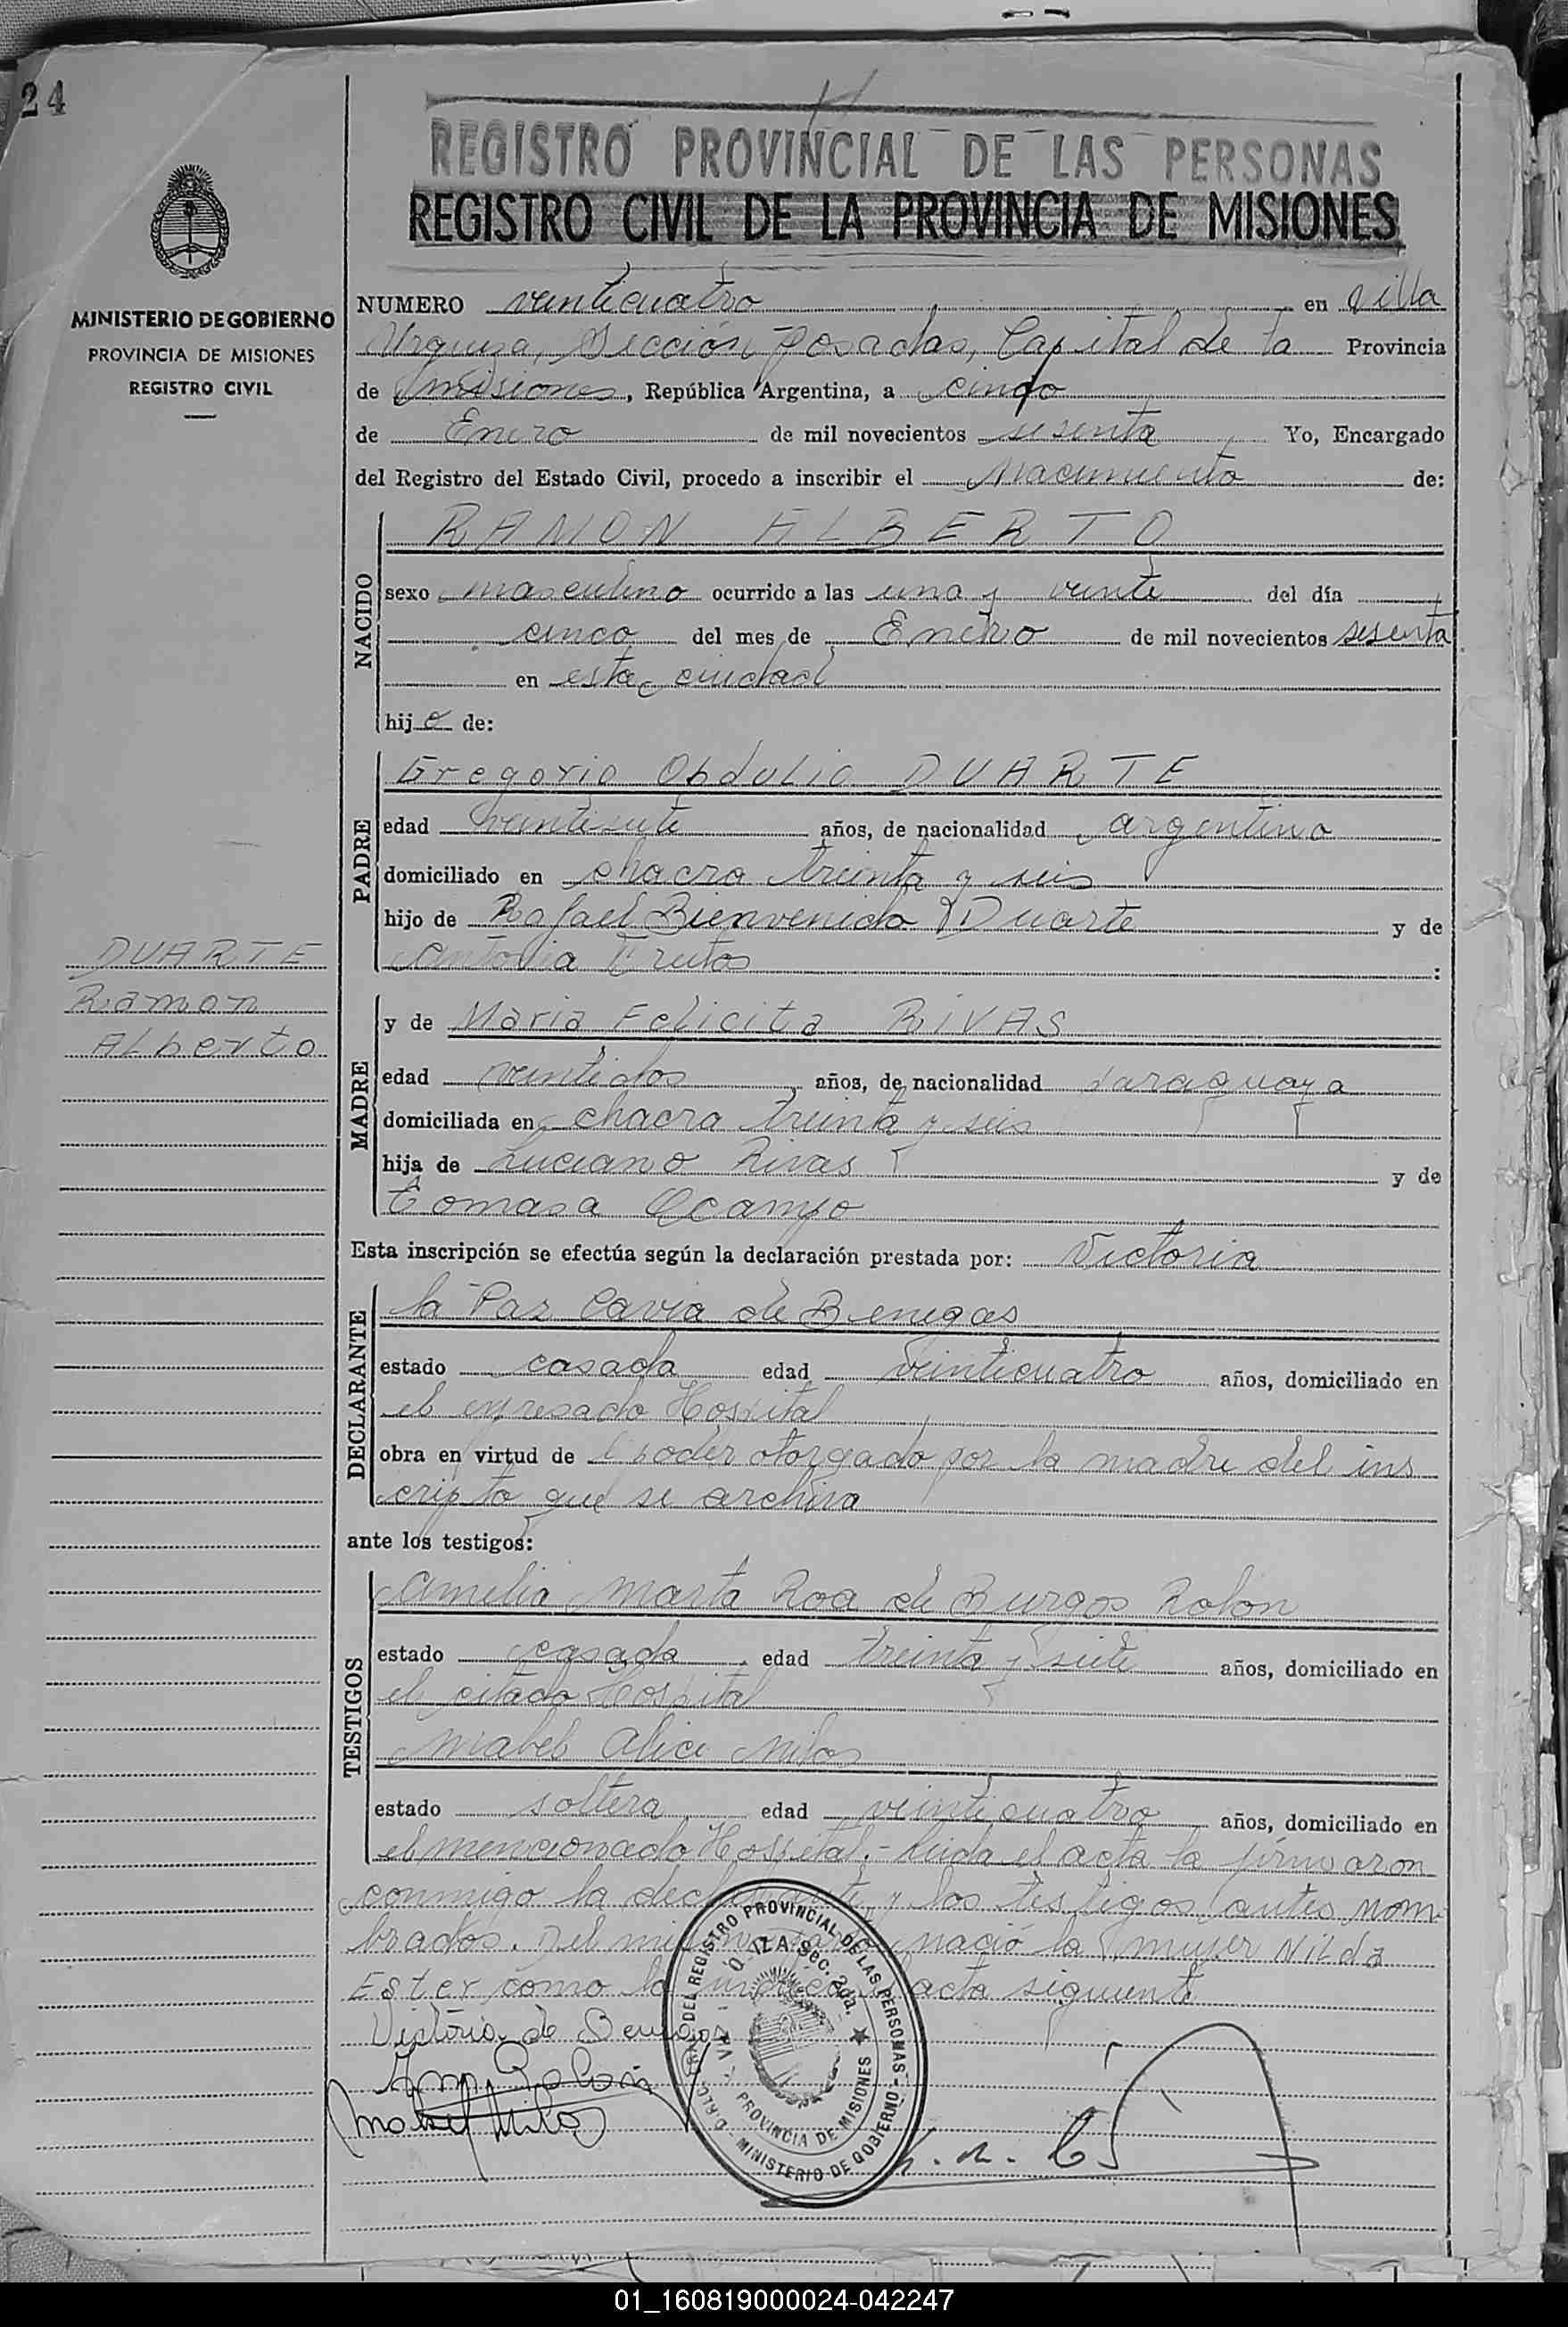 24
REGISTRO PROVINCIAL DE LAS PERSONAS
REGISTRO CIVIL DE LA PROVINCIA DE MISIONES
MINISTERIO DE GOBIERNO
PROVINCIA DE MISIONES
REGISTRO CIVIL
NUMERO veinticuatro en Villa
Urquiza, Sección Posadas, Capital de la Provincia
de Misiones, República Argentina, a cinco
de Enero de mil novecientos sesenta Yo, Encargado
del Registro del Estado Civil, procedo a inscribir el Nacimiento de:
NACIDO
RAMON ALBERTO
sexo masculino ocurrido a las una y veinte del día
cinco del mes de Enero de mil novecientos sesenta
en esta ciudad
hijo de:
PADRE
Gregorio Obdulio DUARTE
edad veintisiete años, de nacionalidad argentina
domiciliado en chacra treinta y seis
hijo de Rafael Bienvenido Duarte y de
Antonia Frutos :
DUARTE
Ramon
Alberto
MADRE
y de Maria Felicita RIVAS
edad veintidos años, de nacionalidad paraguaya
domiciliada en chacra treinta y seis
hija de Luciano Rivas y de
Tomasa Ocampo
Esta inscripción se efectúa según la declaración prestada por: Victoria
DECLARANTE
la Paz Cavia de Benegas
estado casada edad veinticuatro años, domiciliado en
el expresado Hospital
obra en virtud de poder otorgado por la madre del ins
cripto que se archiva
ante los testigos:
TESTIGOS
Amelia Marta Roa de Burgos Rolon
estado casada edad treinta y siete años, domiciliado en
el citado Hospital
Mabel Alice Milos
estado soltera edad veinticuatro años, domiciliado en
el mencionado Hospital.- Leida el acta la firmaron
conmigo la declarante y los testigos antes nom-
brados. Del mismo parto nació la mujer Nilda
Ester como lo indica el acta siguiente
Victoria de Benegas
Rolón
Mabel Milos
DEL REGISTRO PROVINCIAL DE LAS PERSONAS - MINISTERIO DE GOBIERNO
Sec. 2da.
PROVINCIA DE MISIONES
01_160819000024-042247